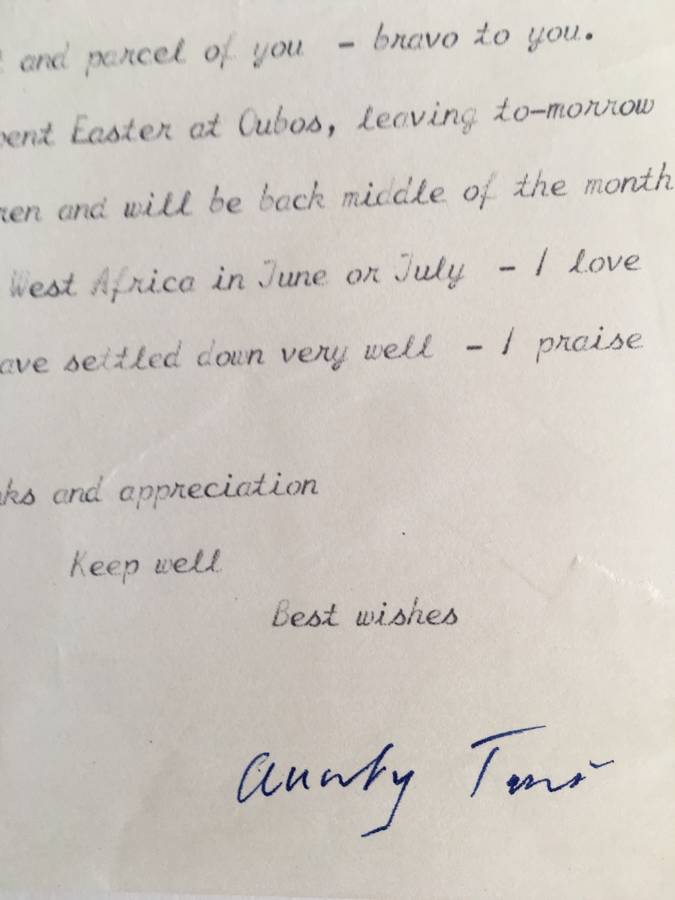 and parcel of you - bravo to you.
ent Easter at Cubos, leaving to-morrow
en and will be back middle of the month
West Africa in June or July - I love
ave settled down very well - I praise
ks and appreciation
Keep well
Best wishes
Aunty